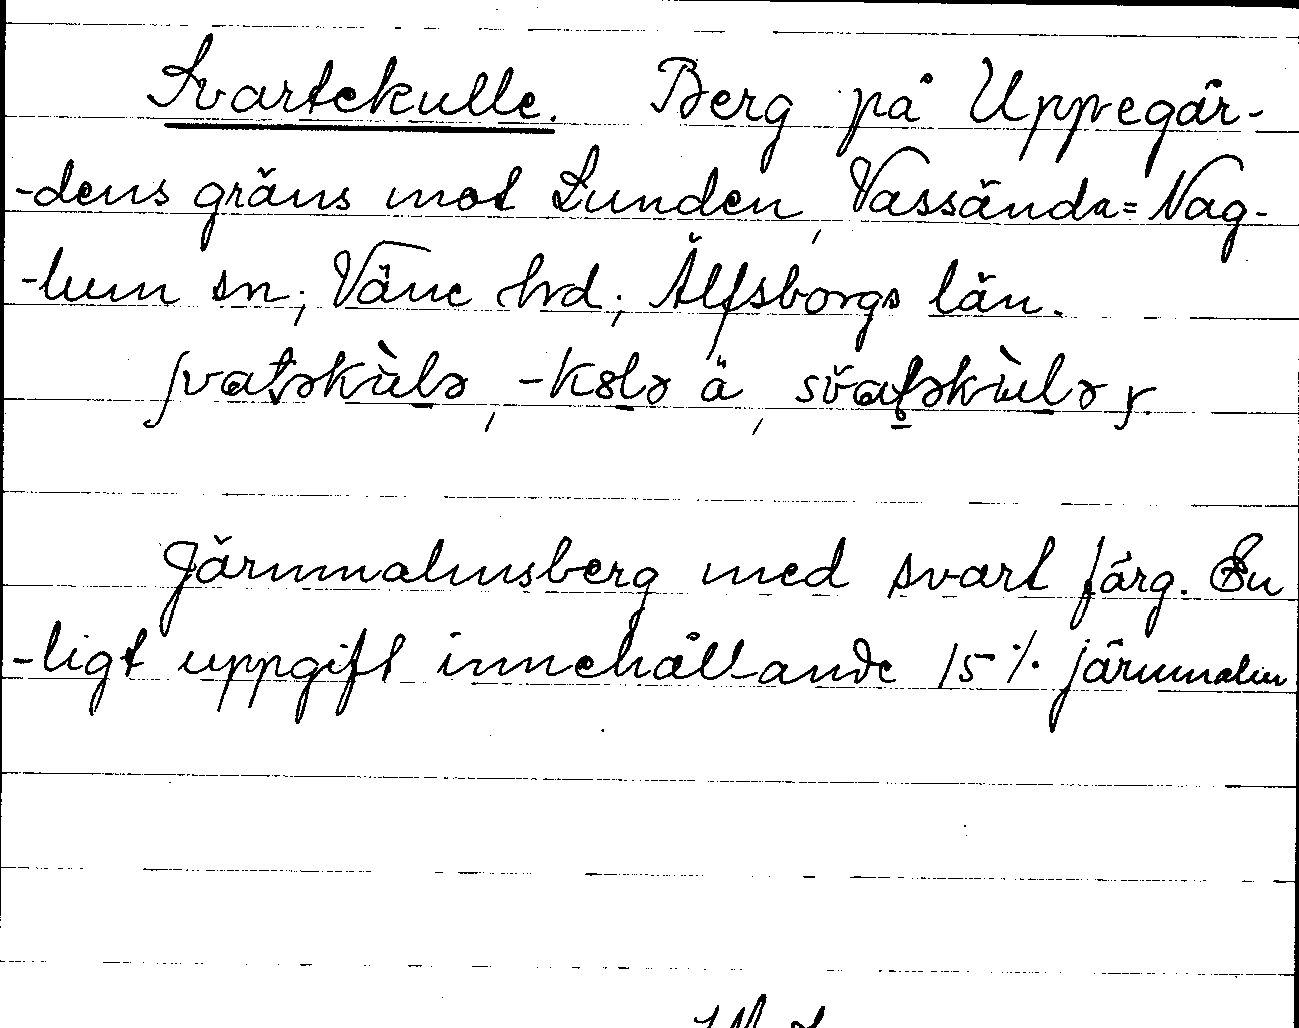 Svartekulle. Berg på Uppegår-
-dens gräns mot Lunden, Vassända=Nag-
-lum sn; Väne hrd; Älfsborgs län.
ʃvatəkùlə, -k8lə ä, svatəkùlə y.
Järnmalmsberg med svart färg. En
-ligt uppgift innehållande 15 % järnmalm